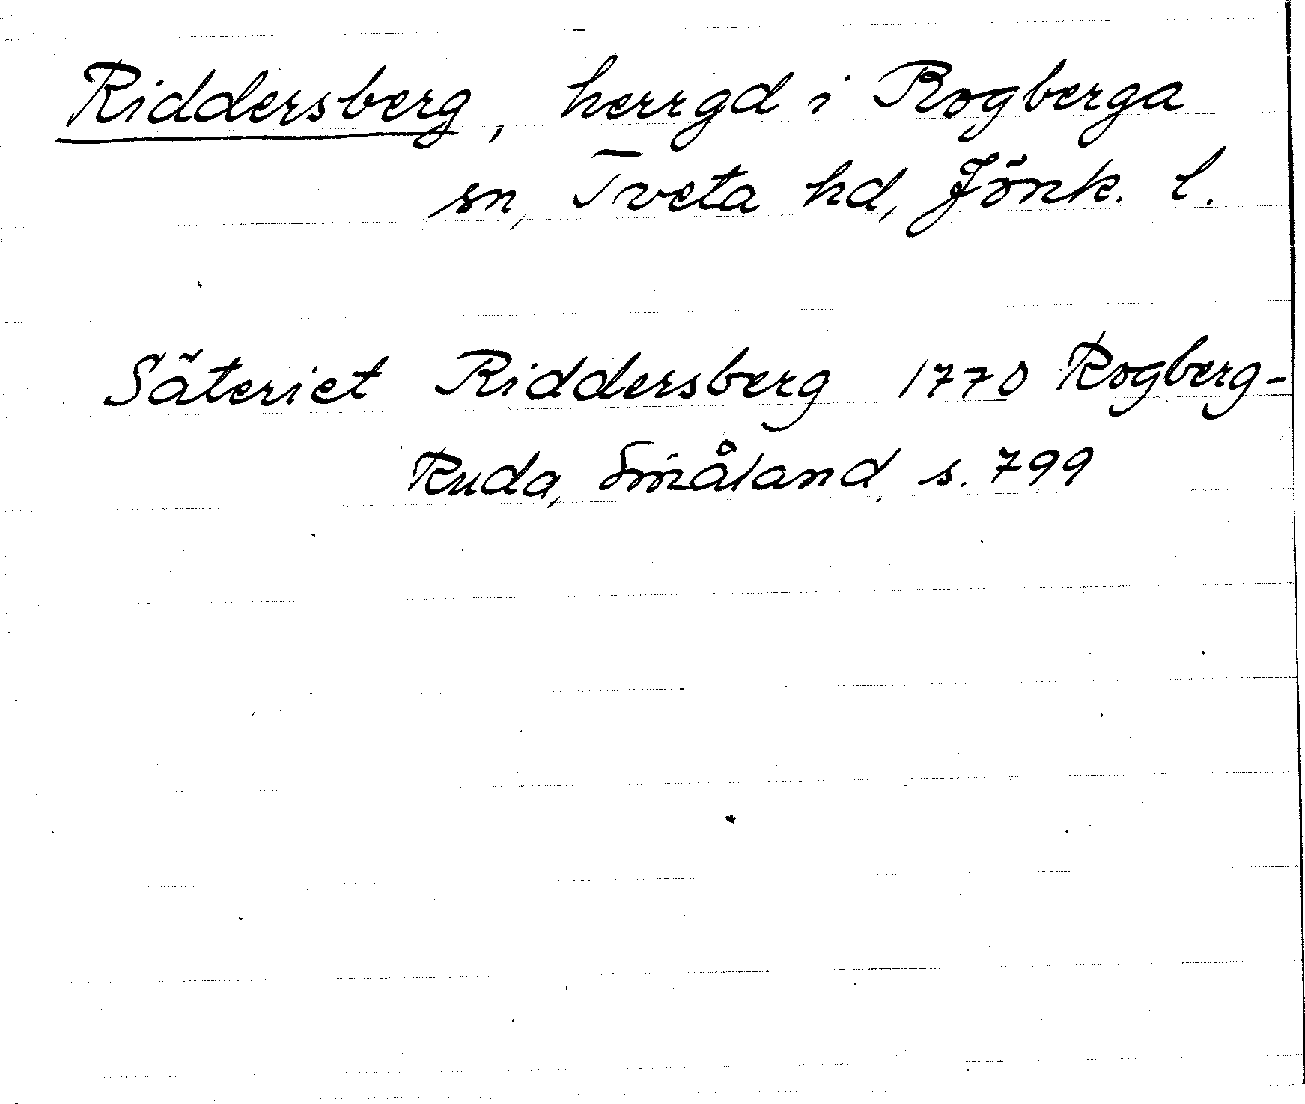 Riddersberg, herrgd i Rogberga
sn, Tveta hd, Jönk. l.
Säteriet Riddersberg 1770 Rogberg-
Ruda, Småland, s. 799